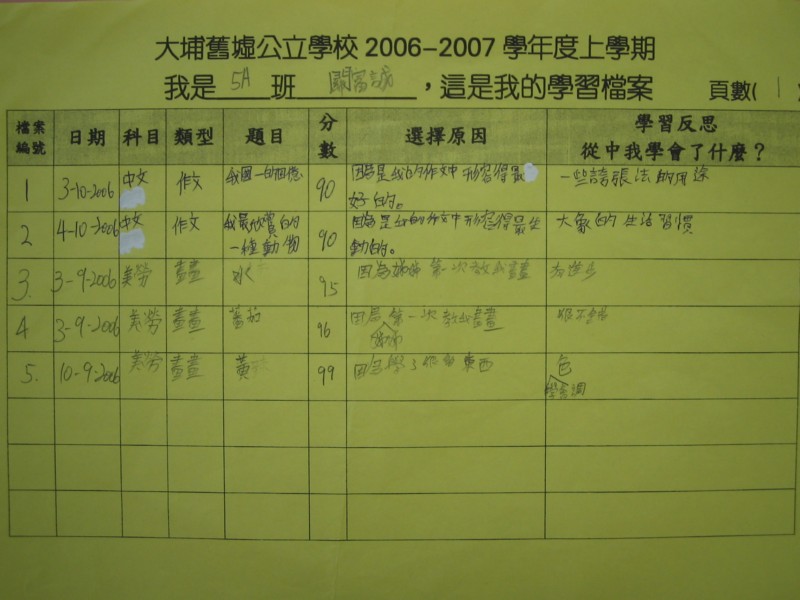 大埔舊墟公立學校 2006-2007 學年度上學期
我是 5A 班 關富誠 ，這是我的學習檔案 頁數( 1
檔案編號 日期 科目 類型 題目 分數 選擇原因 學習反思
從中我學會了什麼？
1 3-10-2006 中文 作文 90 因為是我的作文中形容得最
好的。 一些誇張法的用途
2 4-10-2006 中文 作文 我最欣賞的
一種動物 90 因為是我的作文中形容得最生
動的。 大象的生活習慣
3. 3-9-2006 美勞 畫畫 水 95 因為 第一次教我畫畫
4 3-9-2006 美勞 畫畫 番茄 96 因為 第一次教我畫畫
5. 10-9-2006 美勞 畫畫 黃 99 因為學了 東西 色